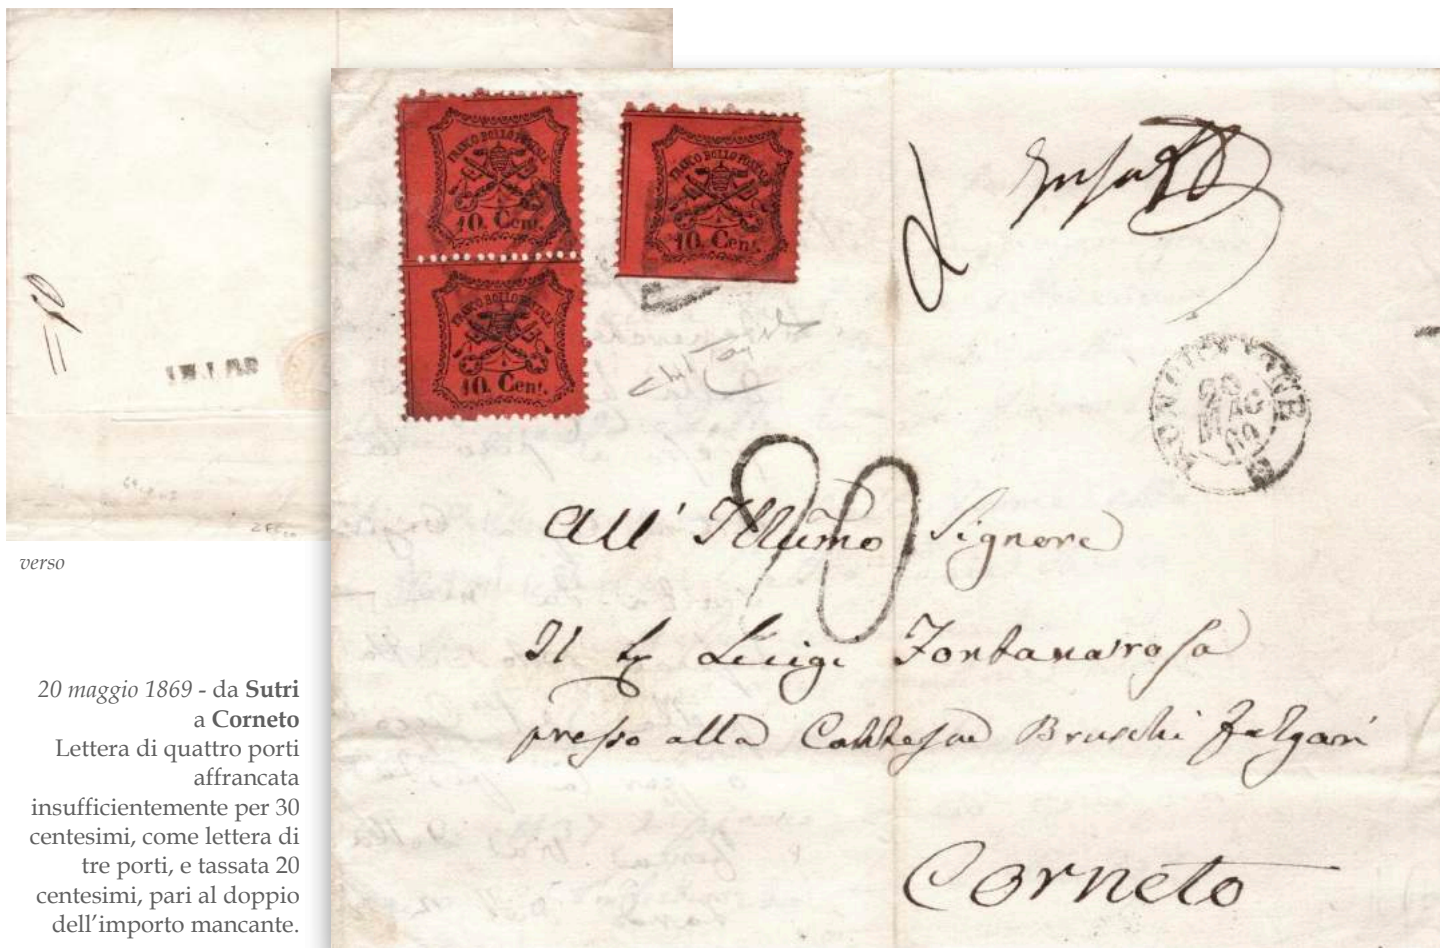 verso
20 maggio 1869 - da Sutri
a Corneto
Lettera di quattro porti
affrancata
insufficientemente per 30
centesimi, come lettera di
tre porti, e tassata 20
centesimi, pari al doppio
dell'importo mancante.
FRANCO BOLLO POSTALE
10. Cent.
FRANCO BOLLO POSTALE
10. Cent.
FRANCO BOLLO POSTALE
10. Cent.
20
MAG
69
20
All' Illumo Signore
Il Luigi Fontanarosa
presso alla Contessa Bruschi Falgari
Corneto